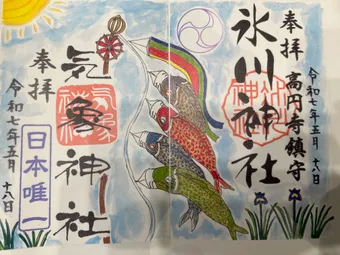 奉拝
高円寺鎮守
氷川神社
令和七年五月十八日
奉拝
気象神社
令和七年五月十八日
日本唯一